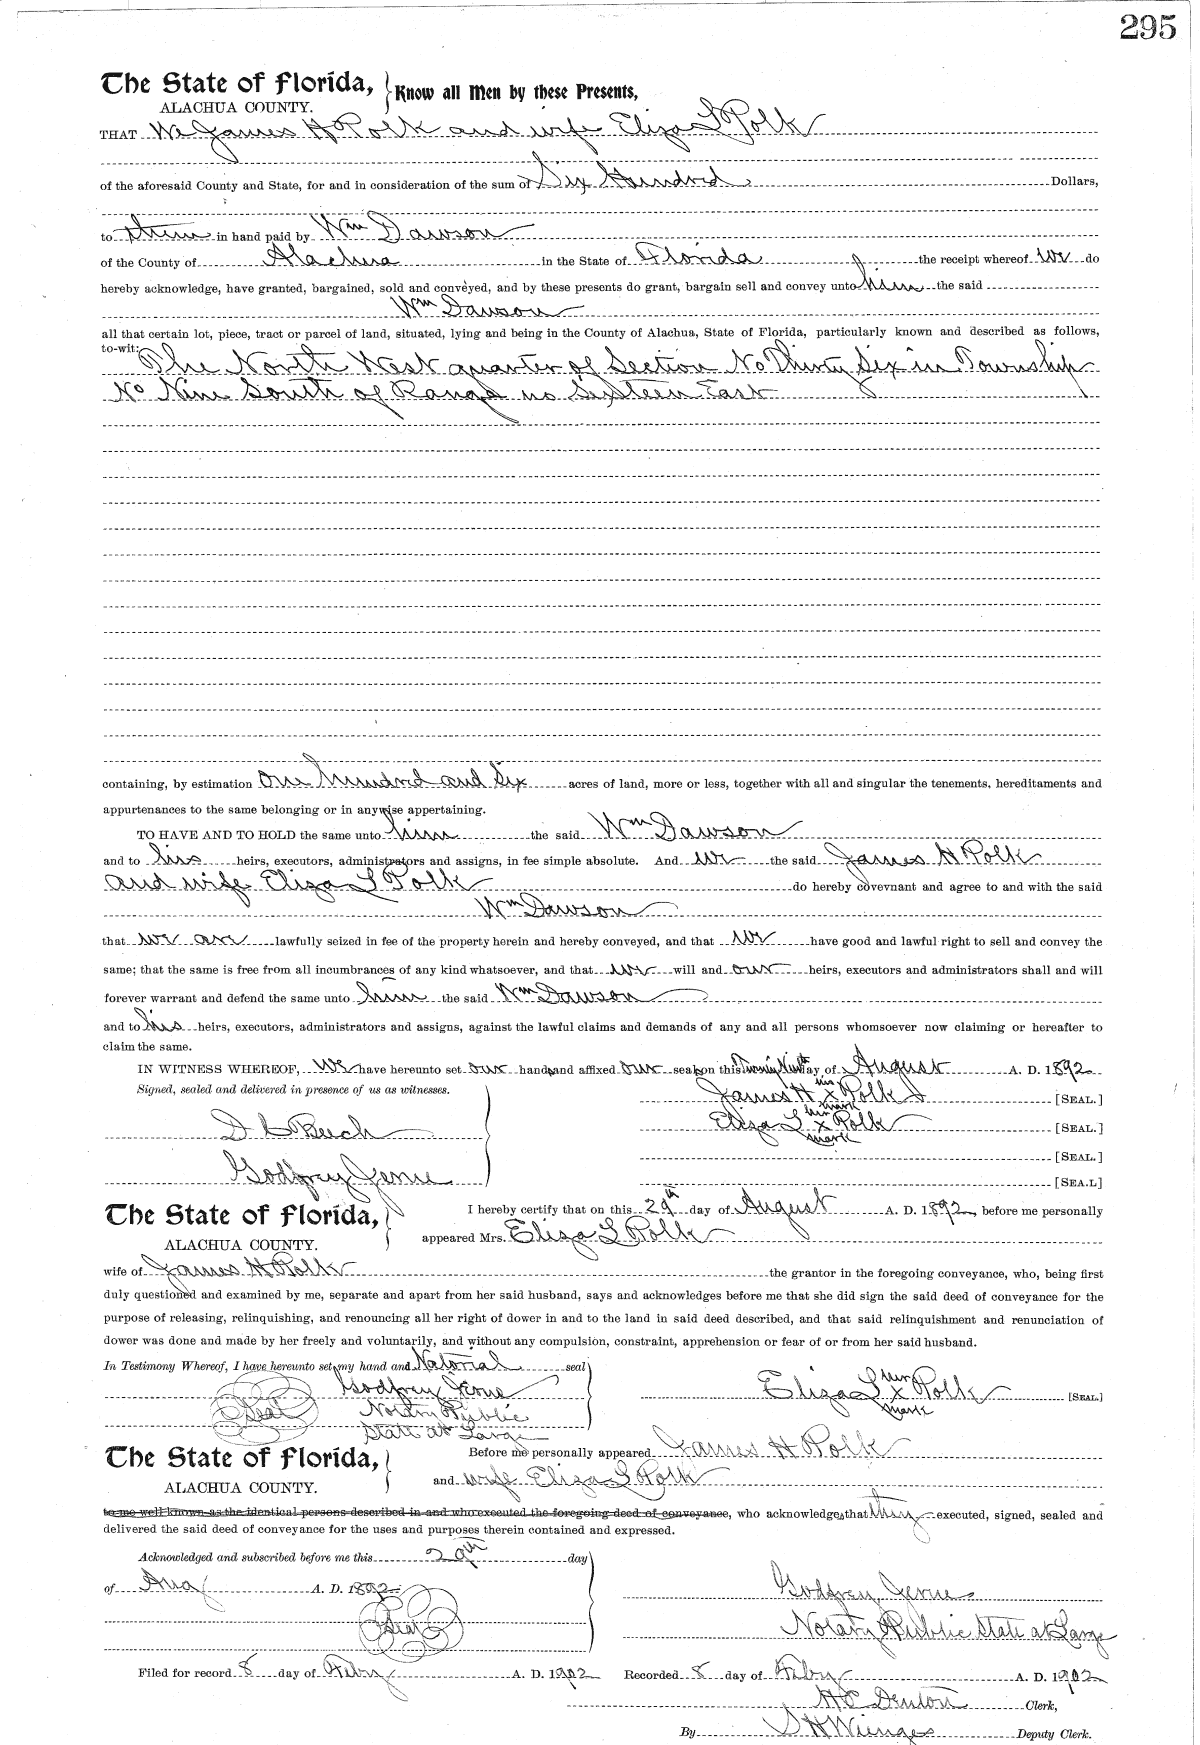 295
The State of Florida, Know all Men by these Presents,
ALACHUA COUNTY.
THAT We James H Polk and wife Eliza L Polk
of the aforesaid County and State, for and in consideration of the sum of Six Hundred Dollars,
to them in hand paid by Wm Dawson
of the County of Alachua in the State of Florida the receipt whereof we do
hereby acknowledge, have granted, bargained, sold and conveyed, and by these presents do grant, bargain sell and convey unto him the said
Wm Dawson
all that certain lot, piece, tract or parcel of land, situated, lying and being in the County of Alachua, State of Florida, particularly known and described as follows,
to-wit: The North West quarter of Section No Thirty Six in Township
No Nine South of Range no Sixteen East
containing, by estimation One hundred and Six acres of land, more or less, together with all and singular the tenements, hereditaments and
appurtenances to the same belonging or in anywise appertaining.
TO HAVE AND TO HOLD the same unto him the said Wm Dawson
and to his heirs, executors, administrators and assigns, in fee simple absolute. And we the said James H Polk
and wife Eliza L Polk do hereby covevnant and agree to and with the said
Wm Dawson
that we are lawfully seized in fee of the property herein and hereby conveyed, and that we have good and lawful right to sell and convey the
same; that the same is free from all incumbrances of any kind whatsoever, and that we will and our heirs, executors and administrators shall and will
forever warrant and defend the same unto him the said Wm Dawson
and to his heirs, executors, administrators and assigns, against the lawful claims and demands of any and all persons whomsoever now claiming or hereafter to
claim the same.
IN WITNESS WHEREOF, We have hereunto set our hands and affixed our seals on this Twenty Ninth day of August A. D. 1892
Signed, sealed and delivered in presence of us as witnesses.
James H his x mark Polk [SEAL.]
Eliza L her x mark Polk [SEAL.]
D L Beech
[SEAL.]
Godfrey [SEA.L]
The State of Florida, I hereby certify that on this 29th day of August A. D. 1892, before me personally
ALACHUA COUNTY. appeared Mrs. Eliza L Polk
wife of James H Polk the grantor in the foregoing conveyance, who, being first
duly questioned and examined by me, separate and apart from her said husband, says and acknowledges before me that she did sign the said deed of conveyance for the
purpose of releasing, relinquishing, and renouncing all her right of dower in and to the land in said deed described, and that said relinquishment and renunciation of
dower was done and made by her freely and voluntarily, and without any compulsion, constraint, apprehension or fear of or from her said husband.
In Testimony Whereof, I have hereunto set my hand and Notorial seal
Godfrey
Eliza L her x mark Polk [SEAL.]
Seal Notary Public
State at Large
The State of Florida, Before me personally appeared James H Polk
ALACHUA COUNTY. and wife Eliza L Polk
to me well known as the identical persons described in and who executed the foregoing deed of conveyance, who acknowledges that they executed, signed, sealed and
delivered the said deed of conveyance for the uses and purposes therein contained and expressed.
Acknowledged and subscribed before me this 29th day
of Aug A. D. 1892
Godfrey
Seal
Notary Public State at Large
Filed for record 8 day of Feby A. D. 1902 Recorded 8 day of Feby A. D. 1902
H C Denton Clerk,
By S H Wienges Deputy Clerk.